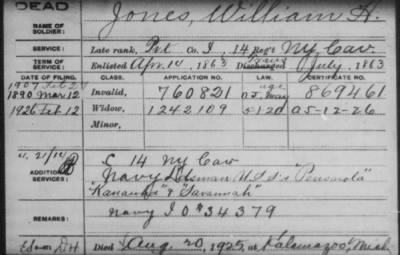 DEAD
NAME OF SOLDIER: Jones, William H.
SERVICE: Late rank, Pvt Co. I, 14 Reg't NY Cav.
TERM OF SERVICE: Enlisted Apr. 14, 1863 Discharged July, 1863
DATE OF FILING. CLASS. APPLICATION NO. LAW. CERTIFICATE NO.
1907 Feb
1890 Mar 12 Invalid, 760821 age 869461
1926 Feb 12 Widow, 1242109 5-1-20 a5-12-26
Minor,
ADDITIONAL SERVICES: S 14 NY Cav
Navy Ldsman U.S.S's "Pensacola"
"Kanawha" & "Savannah"
REMARKS: Navy I O #34379
Died Aug 20, 1925, at Kalamazoo, Mich